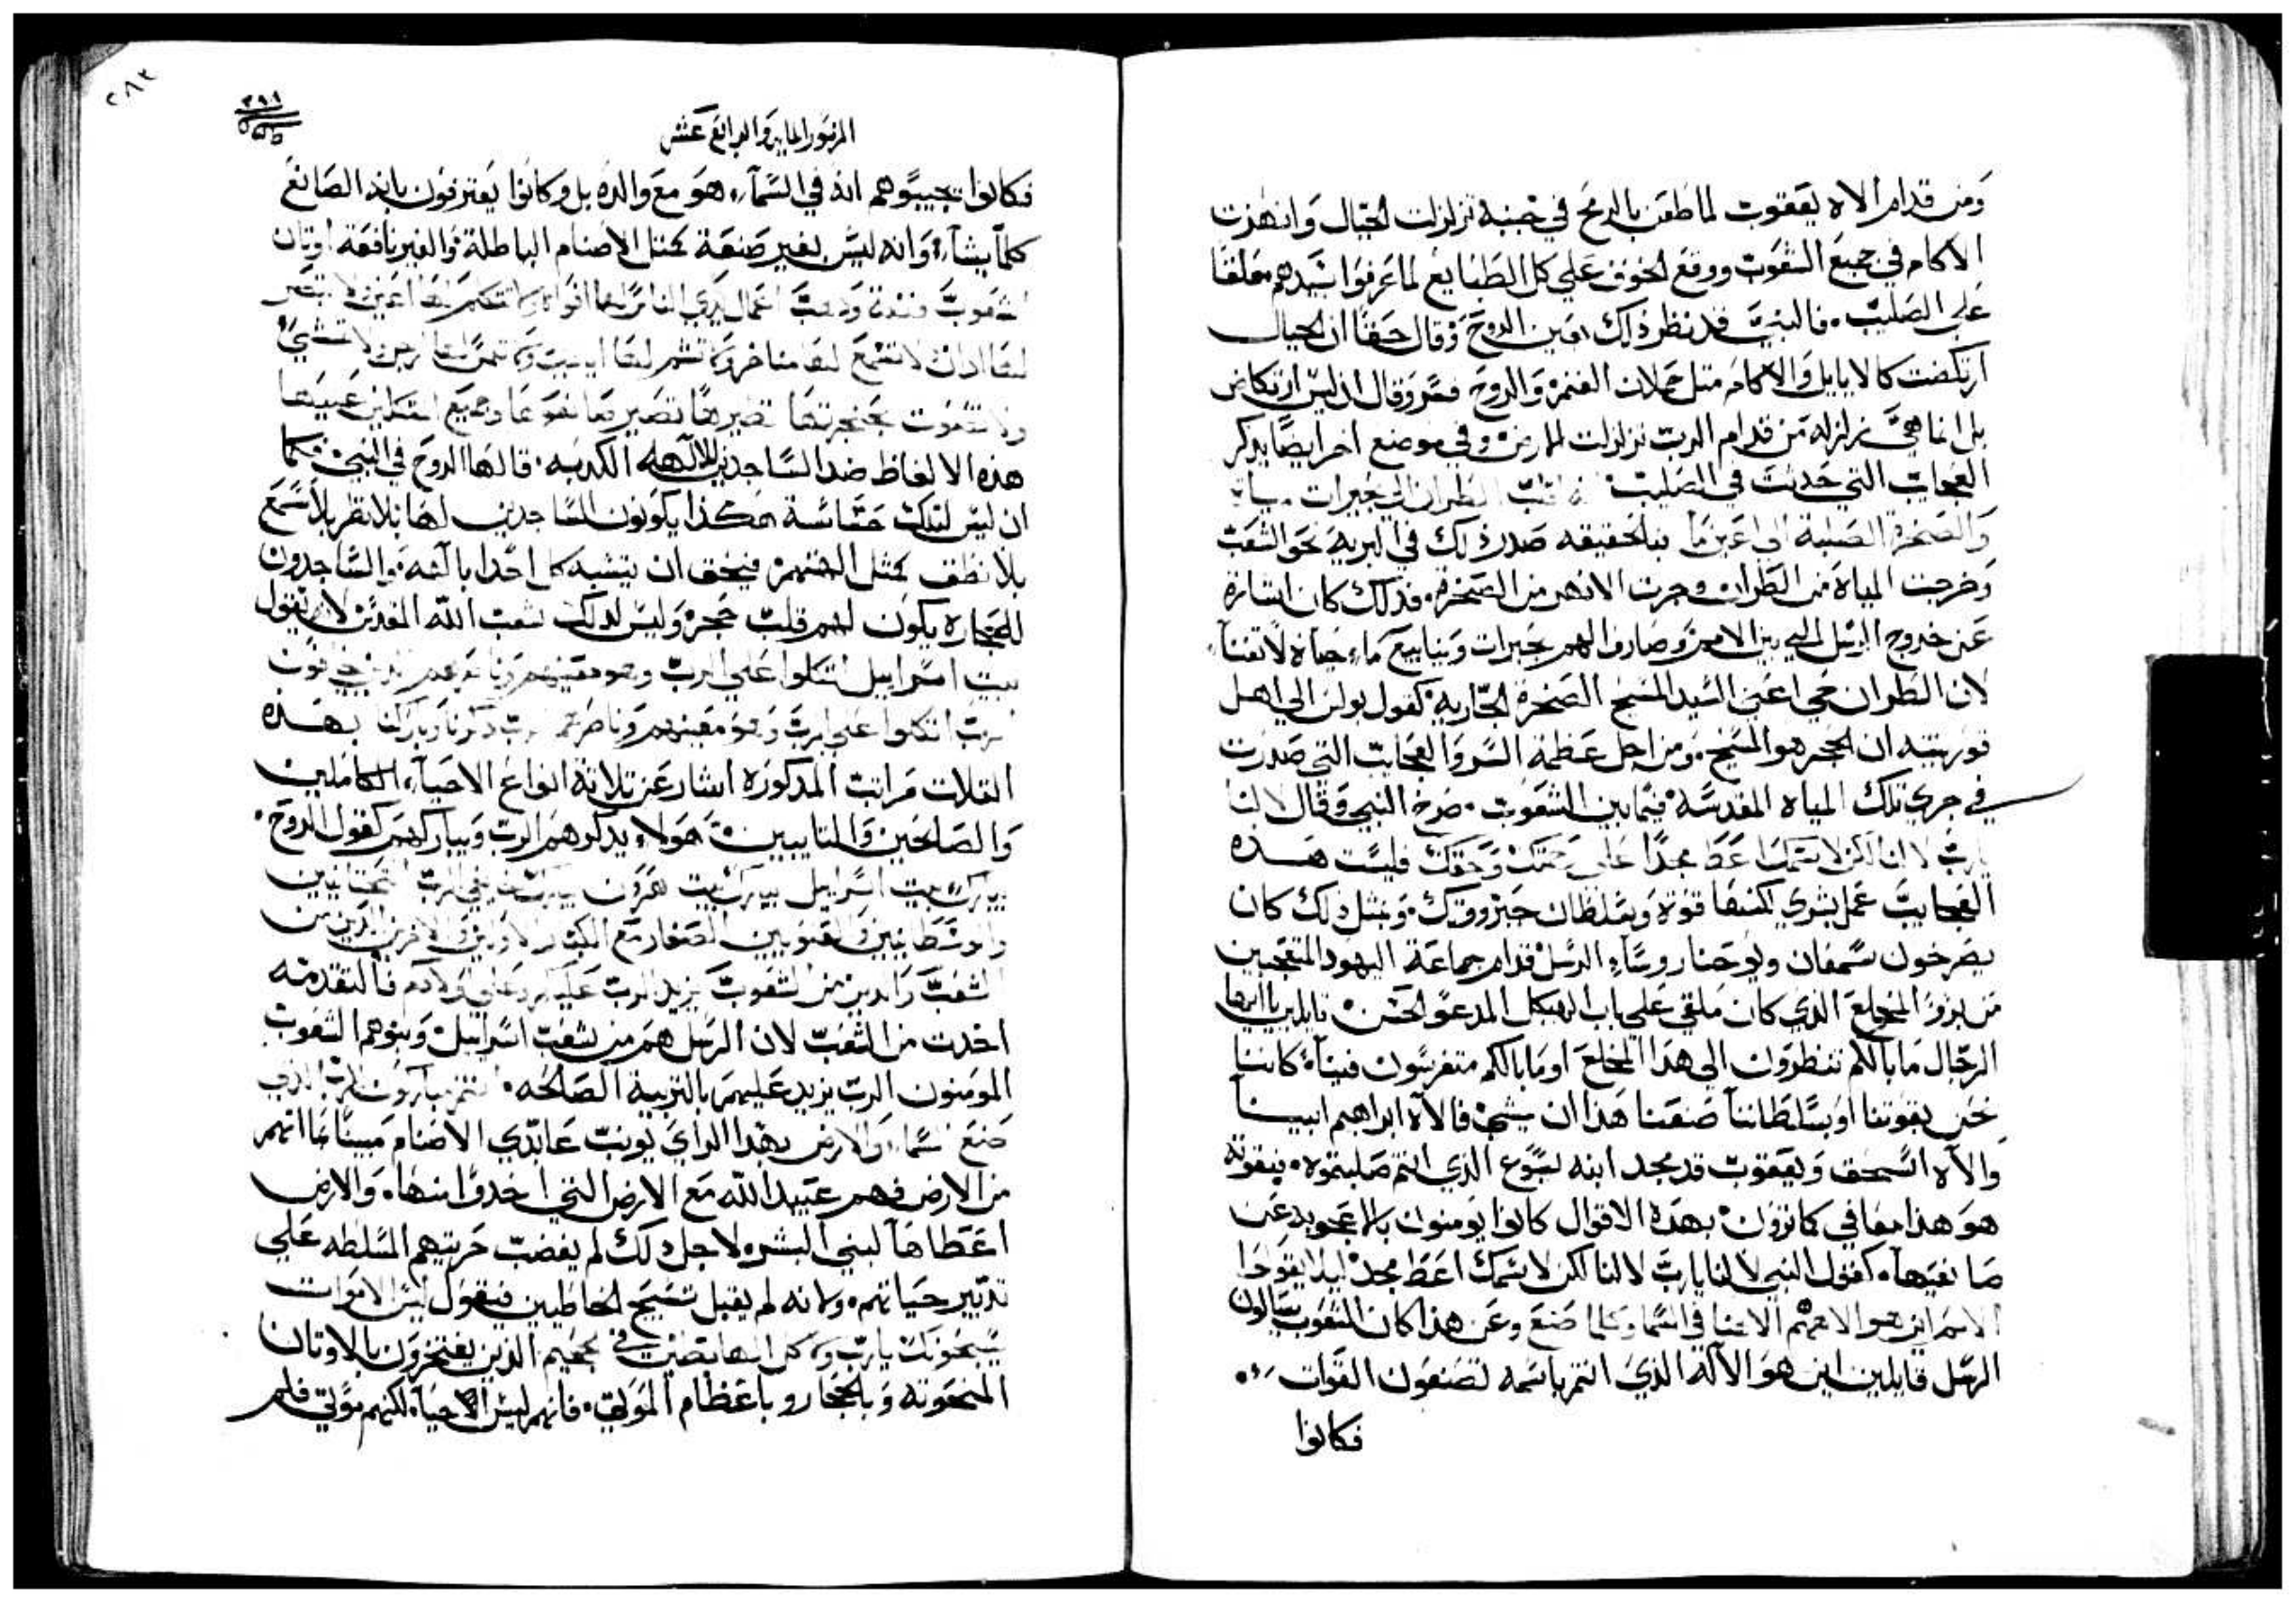 ومن قدام الاه يعقوب لما طعن بالرمح في جنبه تزلزلت الجبال وانهزت
الاكام في جميع الشعوب ووقع الخوف علي كل الطبايع لما عرفوا سيدهم معلقا
علي الصليب. فالنبي قد نظر ذلك بعين الروح وقال حقا ان الجبال
ارتكضت كالايايل والاكام متل حملان الغنم والروح فسر وقال ان ليس ارتكاض
بل انما هي زلزله من قدام الرب تزلزلت الارض وفي موضع اخر ايضا يدكر
العجايب التي حدتت في الصليب الطران الي بحيرات مياه
والصخرة الصلبة الي اعين ما بالحقيقه صدر ذلك في البرية نحو الشعب
وخرجت المياه من الطران وجرت الانهر من الصخرة. فدلك كان اشارة
عن خروج الرسل الي بين الامم وصاروا لهم بحيرات وينابيع ماء حياة لا تفنا
لان الطران هي اعني السيد المسيح الصخرة الجارية كقول بولس الي اهل
قورنتيه ان الحجر هو المسيح. ومن اجل عظمة السر والعجايب التي صدرت
في جري تلك المياه المقدسة فيما بين الشعوب. صرخ النبي وقال لا لنا
يارب لا لنا لكن لاسمك اعط مجدا علي رحمتك وحقك فليست هذه
العجايب عمل بشري لكنها قوة وسلطان جبرووتك. وبمثل ذلك كان
يصرخون سمعان ويوحنا روساء الرسل قدام جماعة اليهود المتعجبين
من بروء المخلع الذي كان ملقي علي باب الهيكل المدعو الحسن قايلين يا ايها
الرجال ما بالكم تنظرون الي هذا المخلع او ما بالكم متفرسون فينا كاننا
نحن بقوتنا او بسلطاننا صنعنا هذا ان يمشي فالاه ابراهيم ابينا
والاه اسحق ويعقوب قد مجد ابنه يسوع الذي انتم صلبتموه. فبقوته
هو هذا معافي كما ترون بهذه الاقوال كانوا يومنون بالاعجوبه عن
صانعها. كقول النبي لا لنا يارب لا لنا لكن لاسمك اعط مجد ليلا يقولوا
الامم اين هو الاههم الاهنا في السما وكلما صنع وعن هذا كان الشعوب يسالون
الرسل قايلين اين هو الاله الذي انتم باسمه تصنعون القوات
فكانوا
٢٨٣
٣٩١
المزمور المايه والرابع عشر
فكانوا يجيبوهم انه في السماء هو مع والده بل وكانوا يعترفون بانه الصانع
كلما يشاء وانه ليس بغير صنعة كمثل الاصنام الباطلة والغير نافعة اوتان
الشعوب فضة ودهب اعمال ايدي الناس لها افواه ولا تتكلم لها اعين لا تبصر
لها ادان لا تسمع لها مناخر ولا تشم لها ايدي ولا تلمس لها ارجل لا تمشي
ولا تصوت بحنجرتها نظيرها تصير صانعوها وجميع المتكلين عليها
هذه الالفاظ ضد الساجدين للالهه الكدبه. قالها الروح في النبي فكما
ان ليس لتلك حساسة هكذا يكونون الساجدين لها بلا نظر بلا سمع
بلا نطق كمثل الهتهم فيحق ان يتشبه كل احدا بالهه والساجدون
للحجارة يكون لهم قلب حجر وليس لدلك شعب الله المقدس لانه يقول
بيت اسراييل اتكلوا علي الرب وهو معينهم وناصرهم
الرب اتكلوا علي الرب وهو معينهم وناصرهم الرب دكرنا وباركنا بهذه
التلات مراتب المدكورة اشار عن تلاتة انواع الاحياء الكاملين
والصالحين والتايبين هولاء يدكرهم الرب ويباركهم كقول الروح.
يبارك بيت اسراييل يبارك بيت هرون
الصغار مع الكبار
الشعب من الشعوب يزيد الرب عليكم وعلي اولادكم فالتقدمه
اخدت من الشعب لان الرسل هم من شعب اسراييل وبنوهم الشعوب
المومنون الرب يزيد عليهم بالتربية الصالحه. انتم مباركون للرب الذي
صنع السماء والارض بهدا الراي يونب عابدي الاصنام مبينا انهم
من الارض فهم عبيد الله مع الارض التي اخدوا منها. والارض
اعطاها لبني البشر. لاجل دلك لم يغضب حريتهم السلطه علي
تدبير حياتهم. ولانه لم يقبل تسبيح الخاطيين فيقول ليس الاموات
يسبحونك يارب ولا كل الهابطين في الجحيم الذين يفتخرون بالاوتان
المنحوته وبالحجار وباعظام الموتي. فانهم ليس الاحياء لكنهم موتي فلم